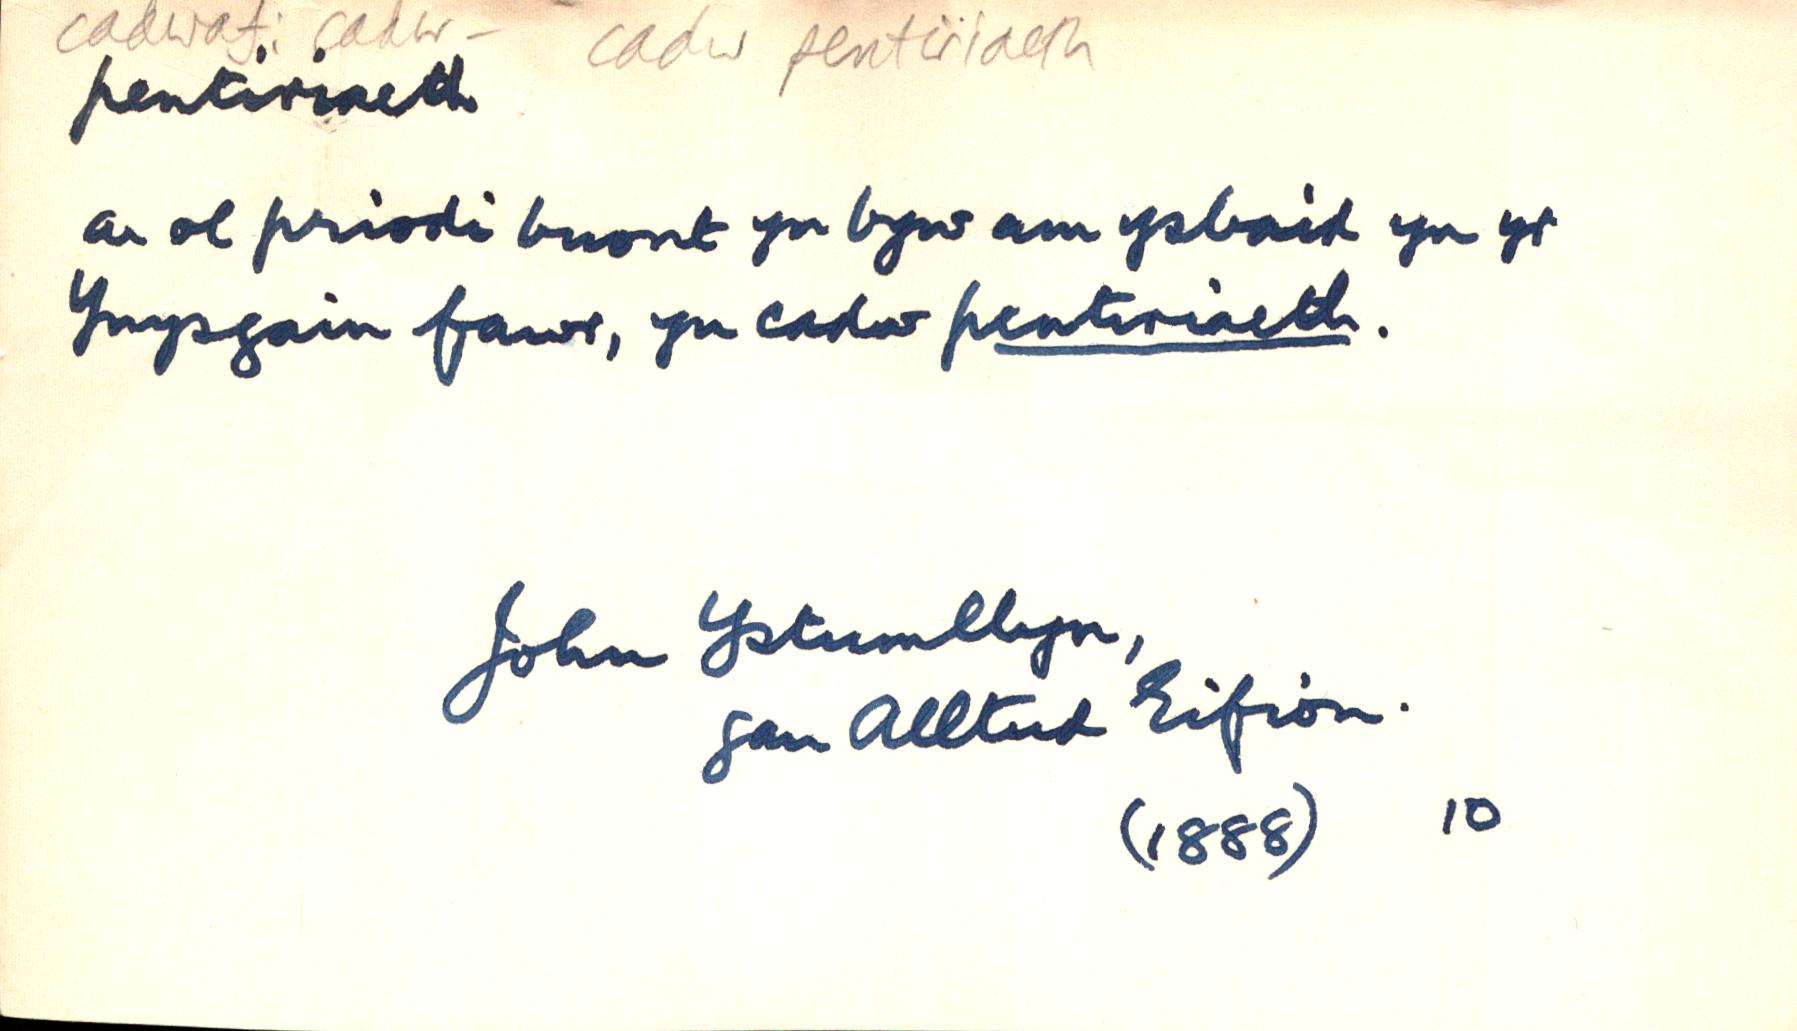 cadwaf: cadw- cadw pentiriaeth
pentiriaeth
ar ol priodi buont yn byw am ysbaid yn yr
Ynysgain fawr, yn cadw pentiriaeth.
John Ystumllyn,
gan Alltud Eifion.
(1888) 10